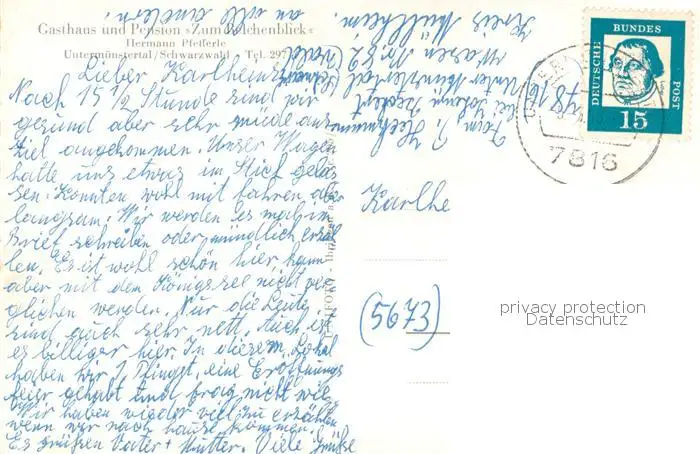 Gasthaus und Pension »Zum Belchenblick«
Hermann Pfefferle
Untermünstertal/Schwarzwald Tel. 297
Lieber Karlheinz
Nach 15 1/2 Stunde sind wir
gesund aber sehr müde am
Ziel angekommen. Unser Wagen
hatte uns etwas im Stich gelas
sen. Konnten wohl mit fahren aber
langsam. Wir werden es mal im
Brief schreiben oder mündlich erzäh
len. Es ist wohl schön hier kann
aber mit dem Königssee nicht ver
glichen werden. Nur die Leute
sind auch sehr nett. Auch ist
es billiger hier. In diesem Lokal
haben wir z. Pfingst. eine Eröffnungs
feier gehabt und frag nicht wie.
Wir haben wieder viel zu erzählen
wenn wir nach hause kommen.
Es grüßen Vater + Mutter. Viele Grüße
an alle andern.
7816 Untermünstertal
Wasen Nr. 82
Kreis Müllheim.
DEUTSCHE BUNDES POST
15
7816
Karlhe
(5673)
privacy protection
Datenschutz